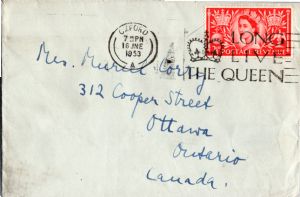 OXFORD
7 30 PM
16 JNE
1953
A
LONG
LIVE
THE QUEEN
POSTAGE REVENUE
Mrs. Muriel Corry
312 Cooper Street
Ottawa
Ontario
Canada.